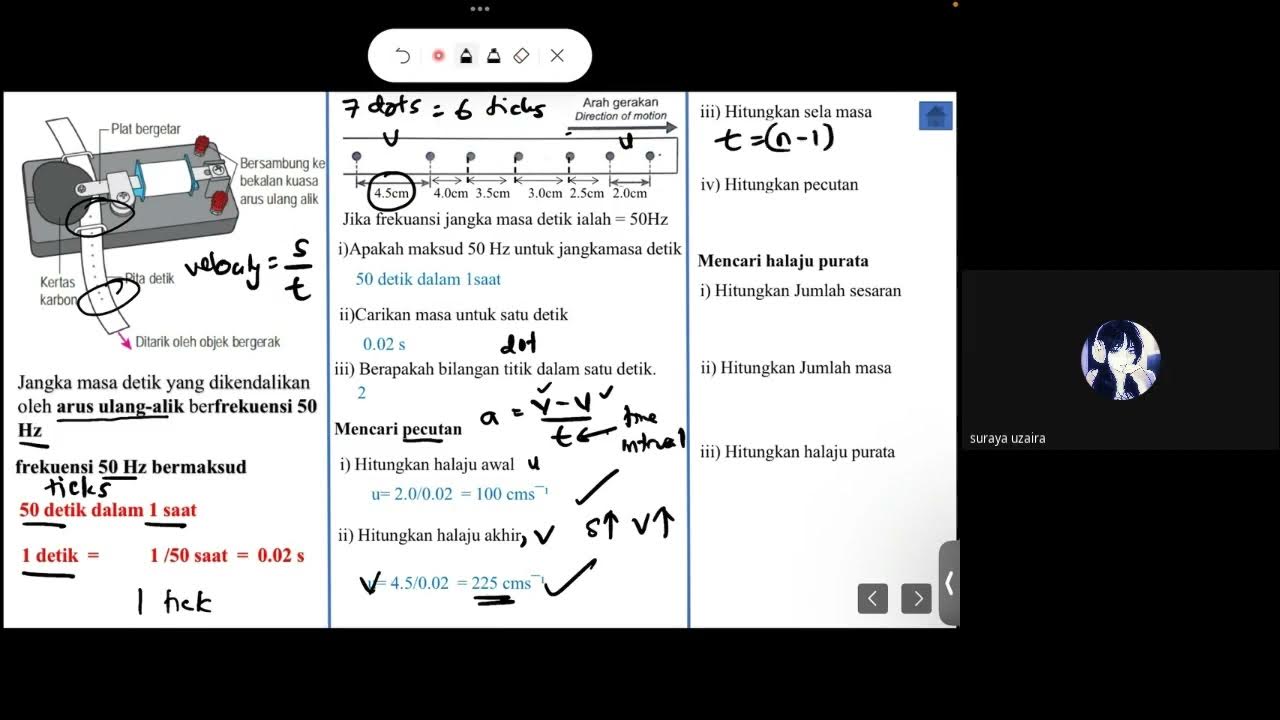 Plat bergetar
Bersambung ke
bekalan kuasa
arus ulang alik
velocity = s/t
Kertas
karbon
Pita detik
Ditarik oleh objek bergerak
Jangka masa detik yang dikendalikan
oleh arus ulang-alik berfrekuensi 50
Hz
frekuensi 50 Hz bermaksud
ticks
50 detik dalam 1 saat
1 detik = 1 /50 saat = 0.02 s
1 tick
7 dots = 6 ticks
Arah gerakan
Direction of motion
v
u
4.5cm 4.0cm 3.5cm 3.0cm 2.5cm 2.0cm
Jika frekuansi jangka masa detik ialah = 50Hz
i)Apakah maksud 50 Hz untuk jangkamasa detik
50 detik dalam 1saat
ii)Carikan masa untuk satu detik
0.02 s
dot
iii) Berapakah bilangan titik dalam satu detik.
2
a = v - v / t
time
interval
Mencari pecutan
i) Hitungkan halaju awal u
u= 2.0/0.02 = 100 cms⁻¹
ii) Hitungkan halaju akhir, v
s↑ v↑
v= 4.5/0.02 = 225 cms⁻¹
iii) Hitungkan sela masa
t = (n - 1)
iv) Hitungkan pecutan
Mencari halaju purata
i) Hitungkan Jumlah sesaran
ii) Hitungkan Jumlah masa
iii) Hitungkan halaju purata
suraya uzaira